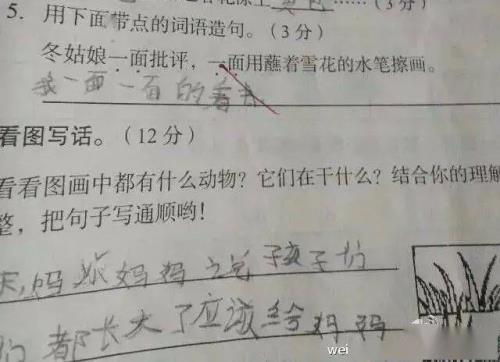 ……（3分）
5. 用下面带点的词语造句。（3分）
冬姑娘一面批评，一面用蘸着雪花的水笔擦画。
我一面一面的看书
看图写话。（12分）
看看图画中都有什么动物？它们在干什么？结合你的理解
整，把句子写通顺哟！
妈妈说孩子们
们都长大了应该给妈妈
wei